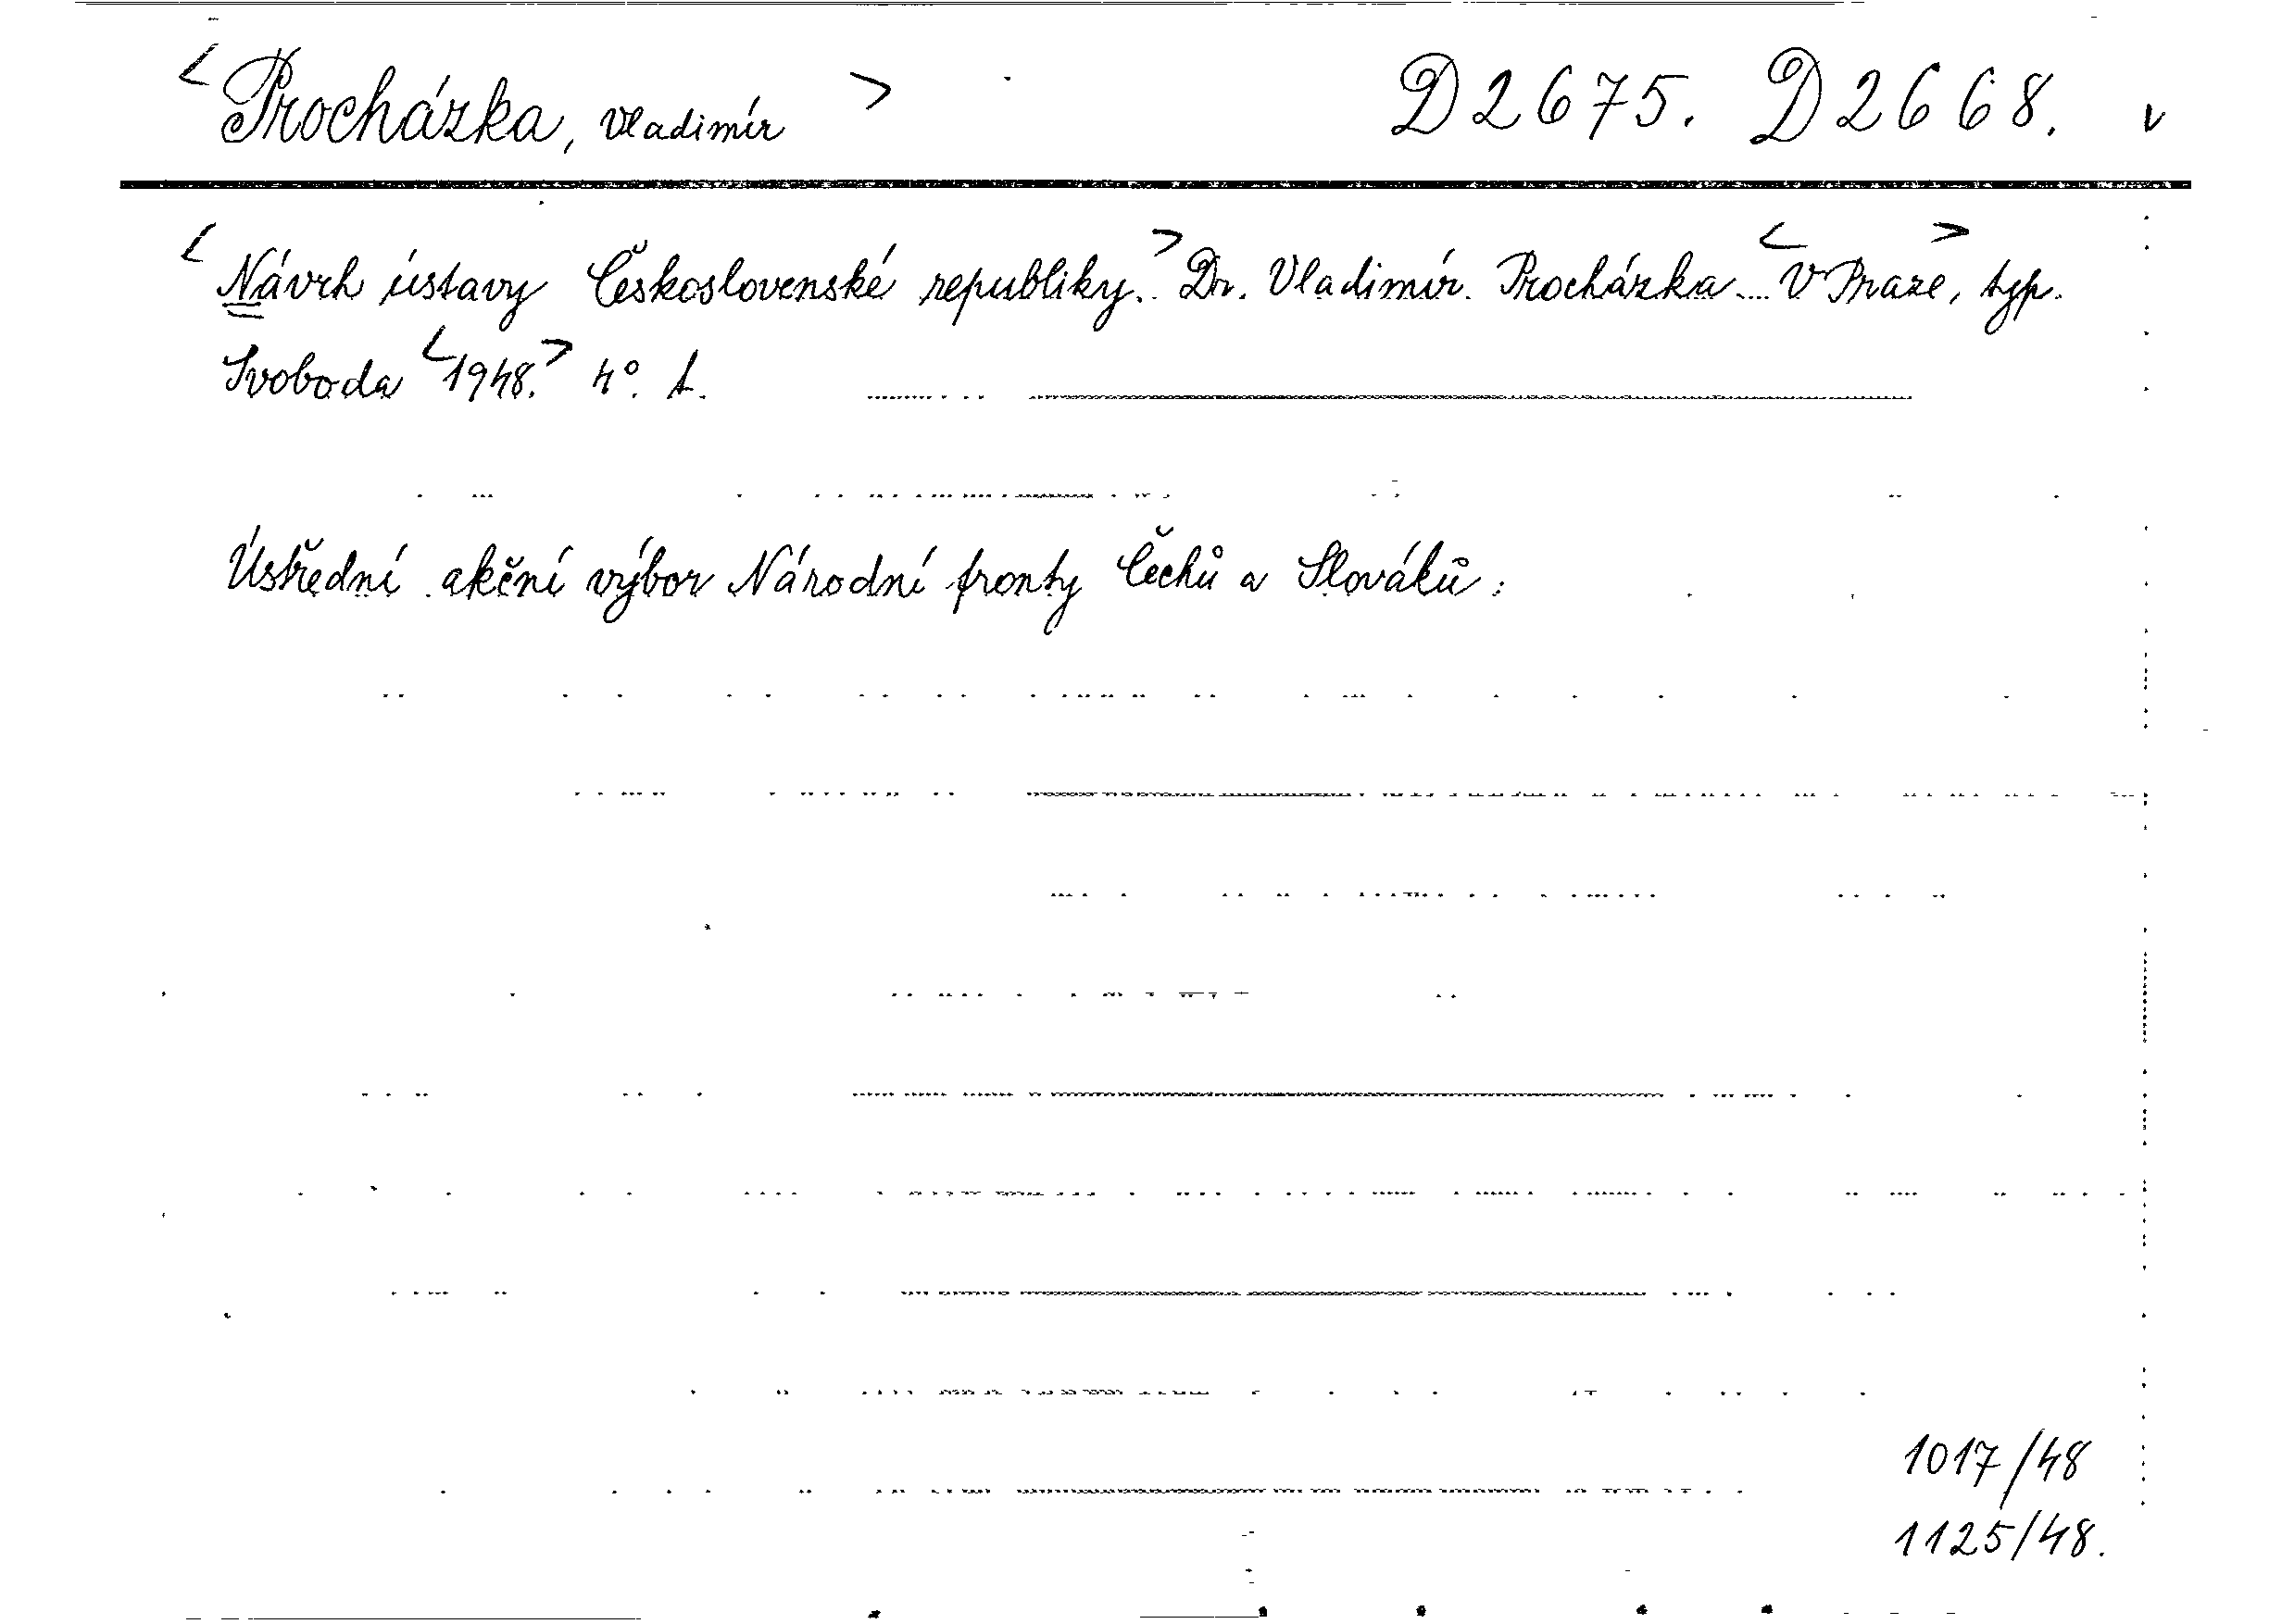 <Procházka, Vladimír> D2675. D2668. v
<Návrh ústavy Československé republiky.> Dr. Vladimír Procházka... <V Praze>, typ.
Svoboda <1948.> 4°. 1.
Ústřední akční výbor Národní fronty Čechů a Slováků:
1017/48
1125/48.